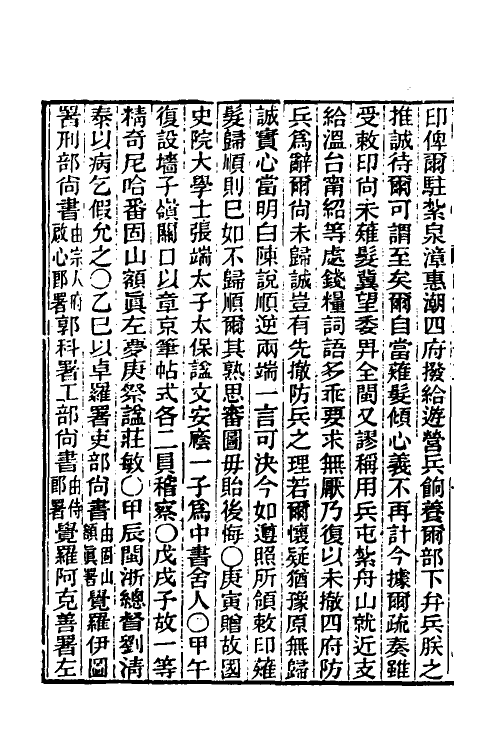 印俾爾駐紮泉漳惠潮四府撥給遊營兵餉養爾部下弁兵朕之
推誠待爾可謂至矣爾自當薙髮傾心義不再計今據爾疏奏雖
受敕印尚未薙髮冀望委畀全閩又謬稱用兵屯紮舟山就近支
給溫台甯紹等處錢糧詞語多乖要求無厭乃復以未撤四府防
兵爲辭爾尚未歸誠豈有先撤防兵之理若爾懷疑猶豫原無歸
誠實心當明白陳說順逆兩端一言可決今如遵照所領敕印薙
髮歸順則已如不歸順爾其熟思審圖毋貽後悔○庚寅贈故國
史院大學士張端太子太保諡文安廕一子爲中書舍人○甲午
復設墻子嶺關口以章京筆帖式各二員稽察○戊戌予故一等
精奇尼哈番固山額眞左夢庚祭諡莊敏○甲辰閩浙總督劉淸
泰以病乞假允之○乙巳以卓羅署吏部尚書由固山額眞署覺羅伊圖
署刑部尚書由宗人府啟心郎署郭科署工部尚書由侍郎署覺羅阿克善署左